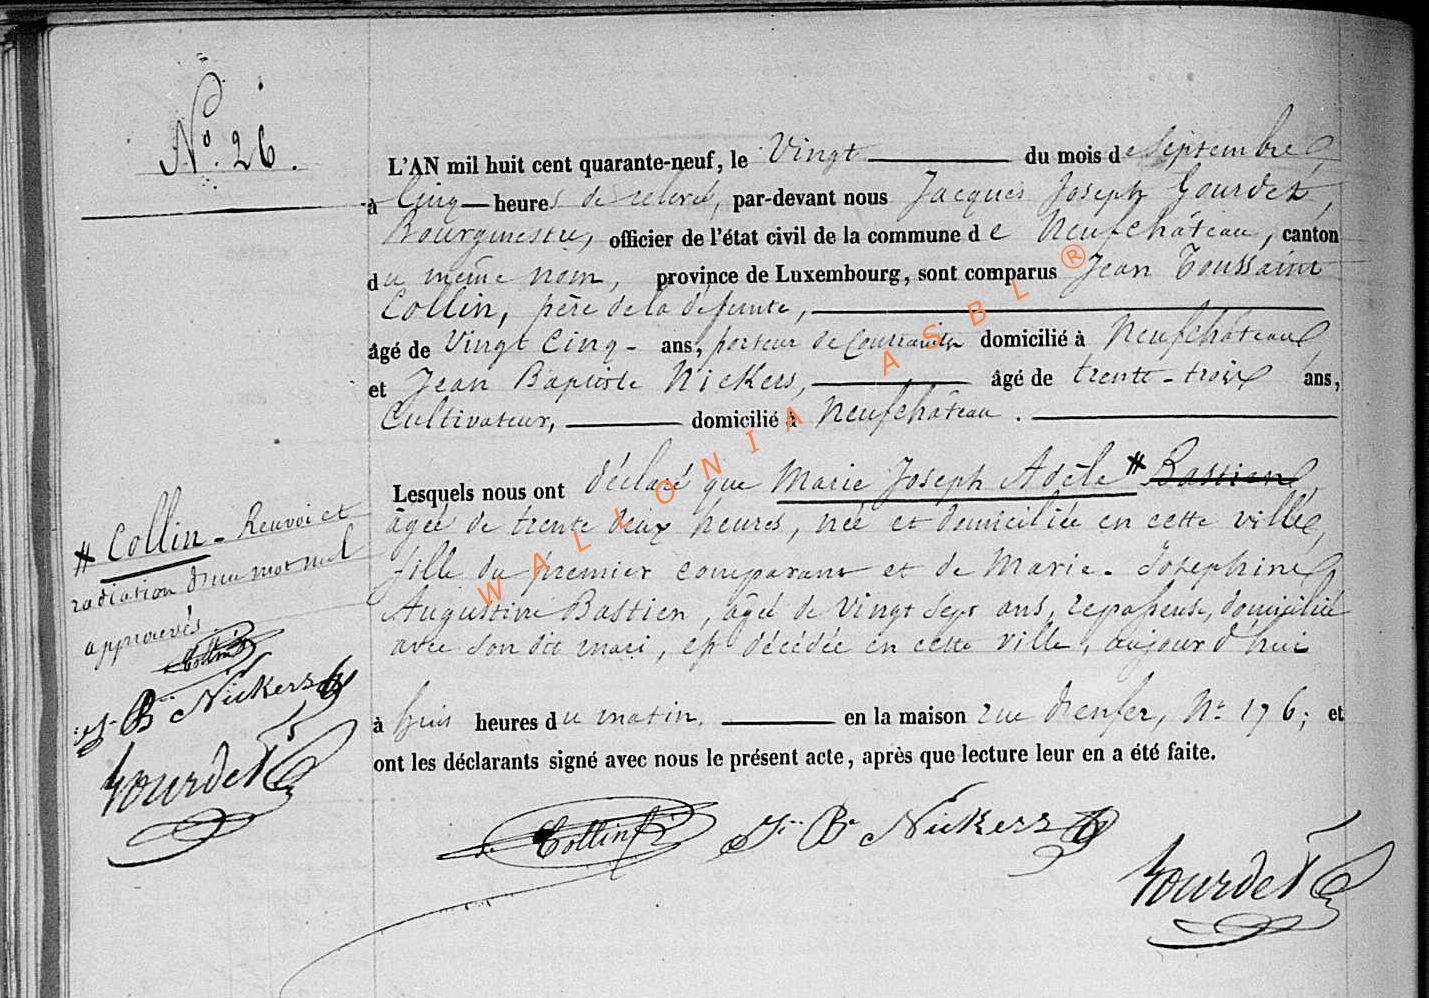 N.º 26.
L'AN mil huit cent quarante-neuf, le Vingt du mois de Septembre,
à Cinq heures de relevé, par-devant nous Jacques Joseph Gourdet,
Bourgmestre, officier de l'état civil de la commune de Neufchâteau, canton
du même nom, province de Luxembourg, sont comparus Jean Toussaint
Collin, père de la défunte,
âgé de Vingt Cinq - ans, porteur de contraintes domicilié à Neufchâteau
et Jean Baptiste Nickers, âgé de trente-trois ans,
Cultivateur, domicilié à Neufchâteau.
Lesquels nous ont déclaré que Marie Joseph Adèle # Bastien,
âgée de trente deux heures, née et domiciliée en cette ville,
fille du premier comparant et de Marie-Josephine
Augustine Bastien, âgée de Vingt Sept ans, repasseuse, domiciliée
avec son dit mari, est décédée en cette ville, aujourd'hui
à huit heures du matin, en la maison rue d'enfer, N.º 176; et
ont les déclarants signé avec nous le présent acte, après que lecture leur en a été faite.
# Collin - Renvoi et
radiation d'un mot nul
approuvés.
Collin
J. B. Nickers
Gourdet
Collin
Jn. Bte. Nickers
Gourdet
WALLONIA ASBL ®